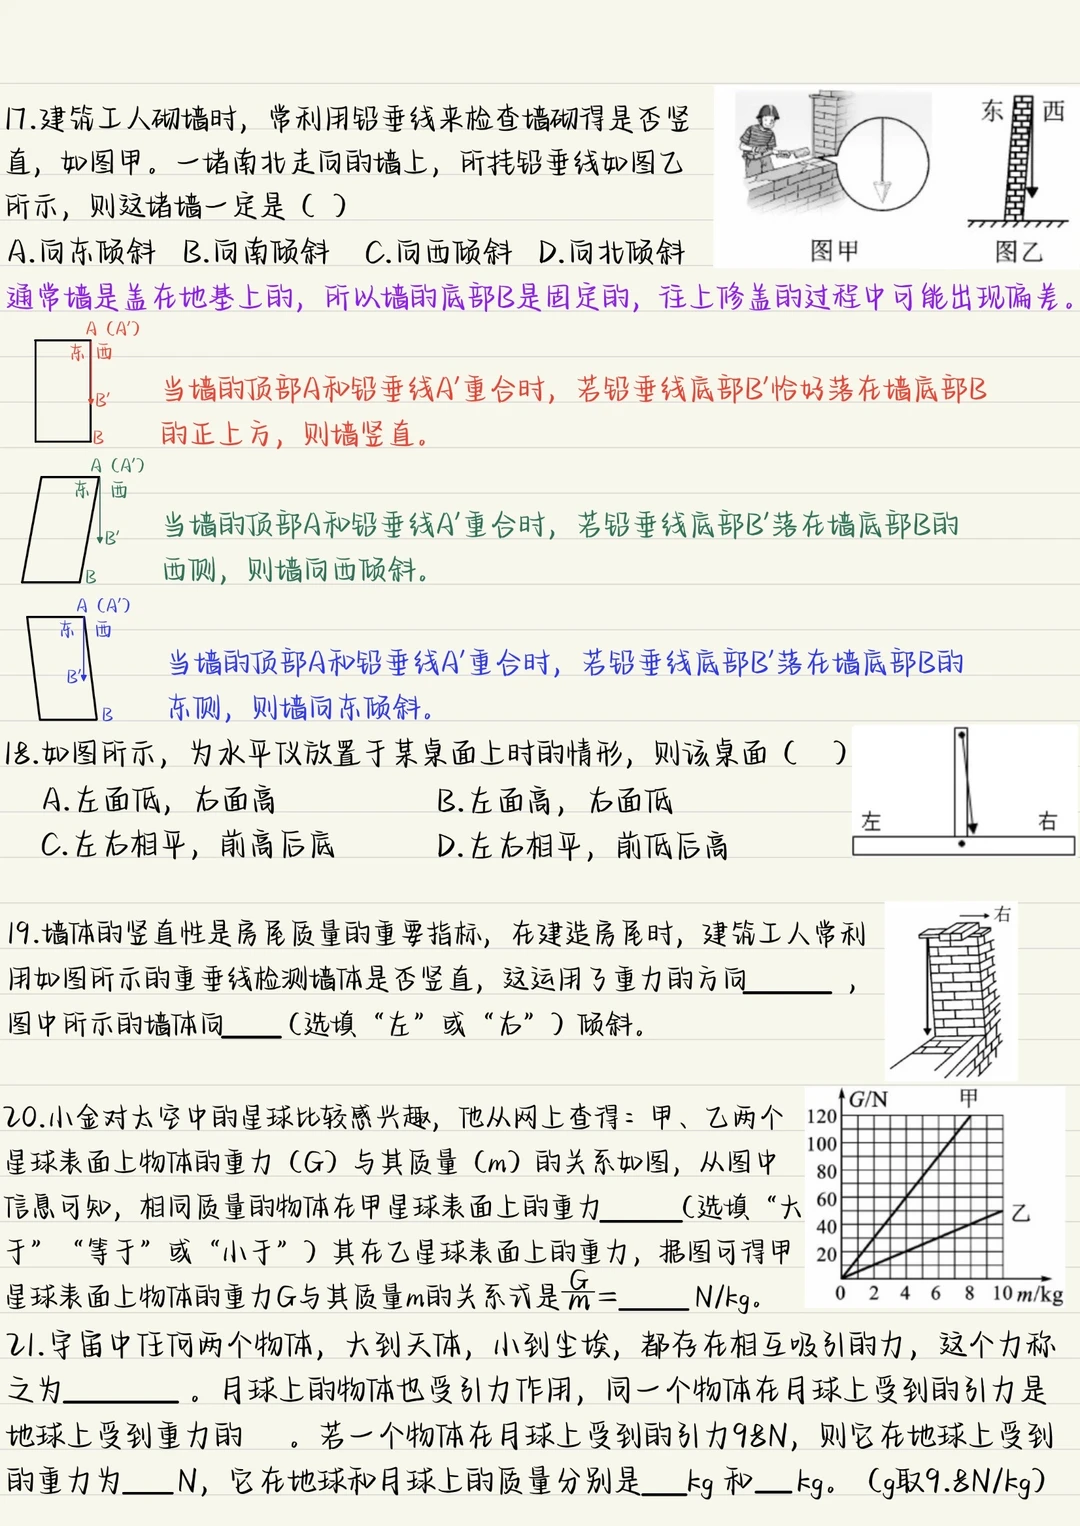 17.建筑工人砌墙时，常利用铅垂线来检查墙砌得是否竖
直，如图甲。一堵南北走向的墙上，所挂铅垂线如图乙
所示，则这堵墙一定是（ ）
A.向东倾斜 B.向南倾斜 C.向西倾斜 D.向北倾斜
东 西
图甲 图乙
通常墙是盖在地基上的，所以墙的底部B是固定的，往上修盖的过程中可能出现偏差。
A（A′）
东 西
B′
B
当墙的顶部A和铅垂线A′重合时，若铅垂线底部B′恰好落在墙底部B
的正上方，则墙竖直。
A（A′）
东 西
B′
B
当墙的顶部A和铅垂线A′重合时，若铅垂线底部B′落在墙底部B的
西侧，则墙向西倾斜。
A（A′）
东 西
B′
B
当墙的顶部A和铅垂线A′重合时，若铅垂线底部B′落在墙底部B的
东侧，则墙向东倾斜。
18.如图所示，为水平仪放置于某桌面上时的情形，则该桌面（ ）
A.左面低，右面高 B.左面高，右面低
C.左右相平，前高后底 D.左右相平，前低后高
左 右
19.墙体的竖直性是房屋质量的重要指标，在建造房屋时，建筑工人常利
用如图所示的重垂线检测墙体是否竖直，这运用了重力的方向______，
图中所示的墙体向____（选填“左”或“右”）倾斜。
右
20.小金对太空中的星球比较感兴趣，他从网上查得：甲、乙两个
星球表面上物体的重力（G）与其质量（m）的关系如图，从图中
信息可知，相同质量的物体在甲星球表面上的重力______（选填“大
于”“等于”或“小于”）其在乙星球表面上的重力，据图可得甲
星球表面上物体的重力G与其质量m的关系式是G/m=_____N/kg。
G/N 甲
120
100
80
60
40
20
乙
0 2 4 6 8 10 m/kg
21.宇宙中任何两个物体，大到天体，小到尘埃，都存在相互吸引的力，这个力称
之为________。月球上的物体也受引力作用，同一个物体在月球上受到的引力是
地球上受到重力的 。若一个物体在月球上受到的引力98N，则它在地球上受到
的重力为____N，它在地球和月球上的质量分别是___kg和___kg。（g取9.8N/kg）